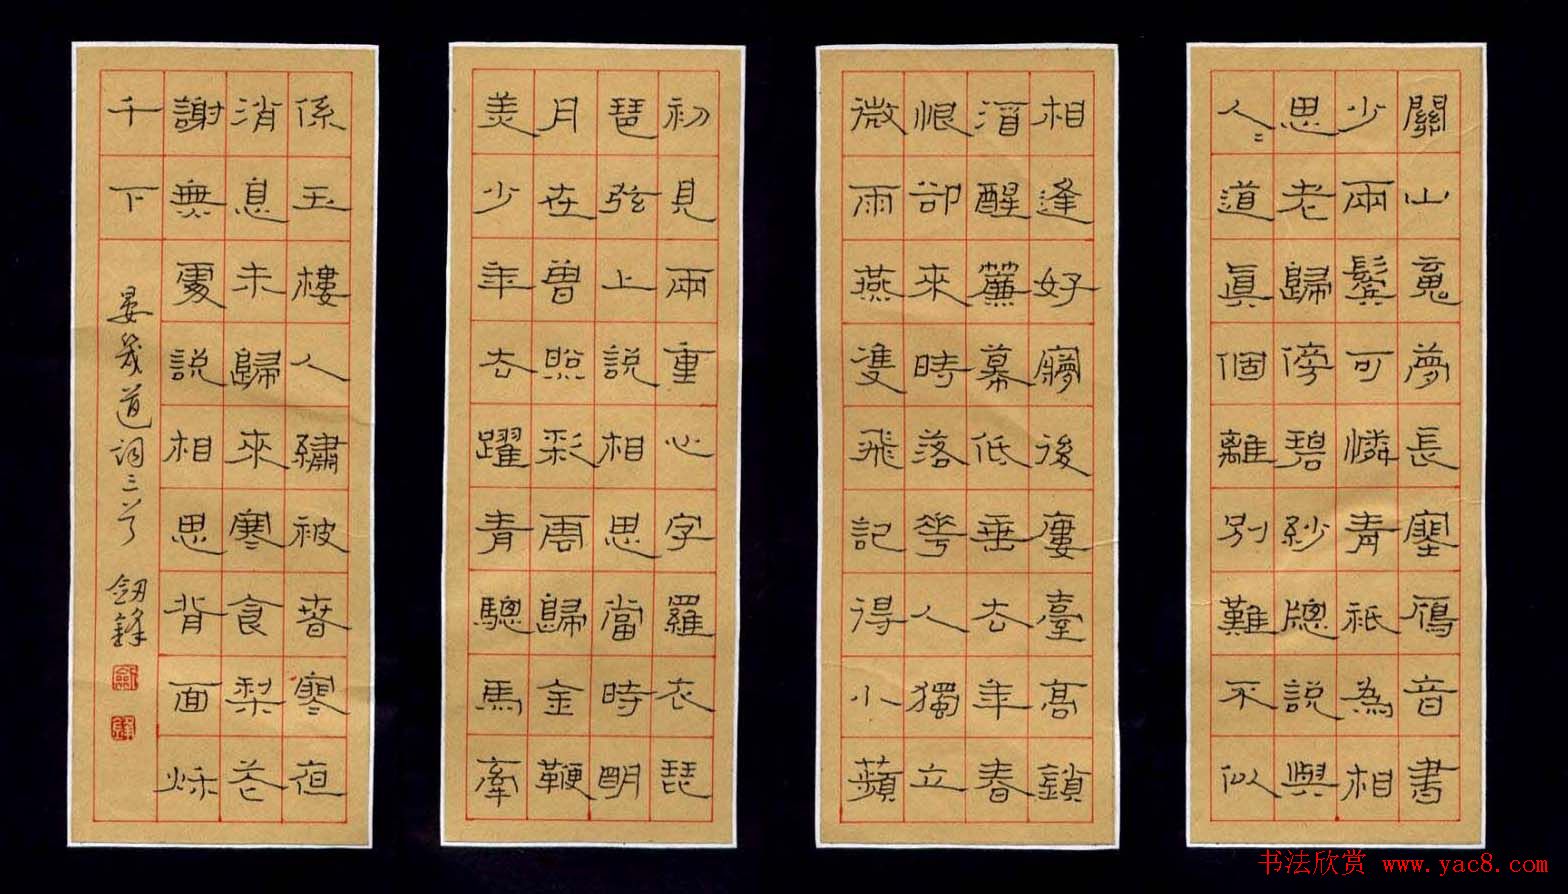 關山䰟夢長塞鴈音書
少兩鬢可憐青祇為相
思老歸傍碧紗牕説與
人〻道眞個離别難不似
相逢好㝱後廔臺高鎖
酒醒簾幕低垂去年春
恨卻來時落華人獨立
微雨燕雙飛記得小蘋
初見兩重心字羅衣琵
琶弦上説相思當時明
月在曾照彩雲歸金鞭
美少年去躍青驄馬牽
係玉樓人繡被春寒夜
消息未歸來寒食梨花
謝無處説相思背面秋
千下
晏幾道詞三首 劍鋒
劍
鋒
书法欣赏 www.yac8.com